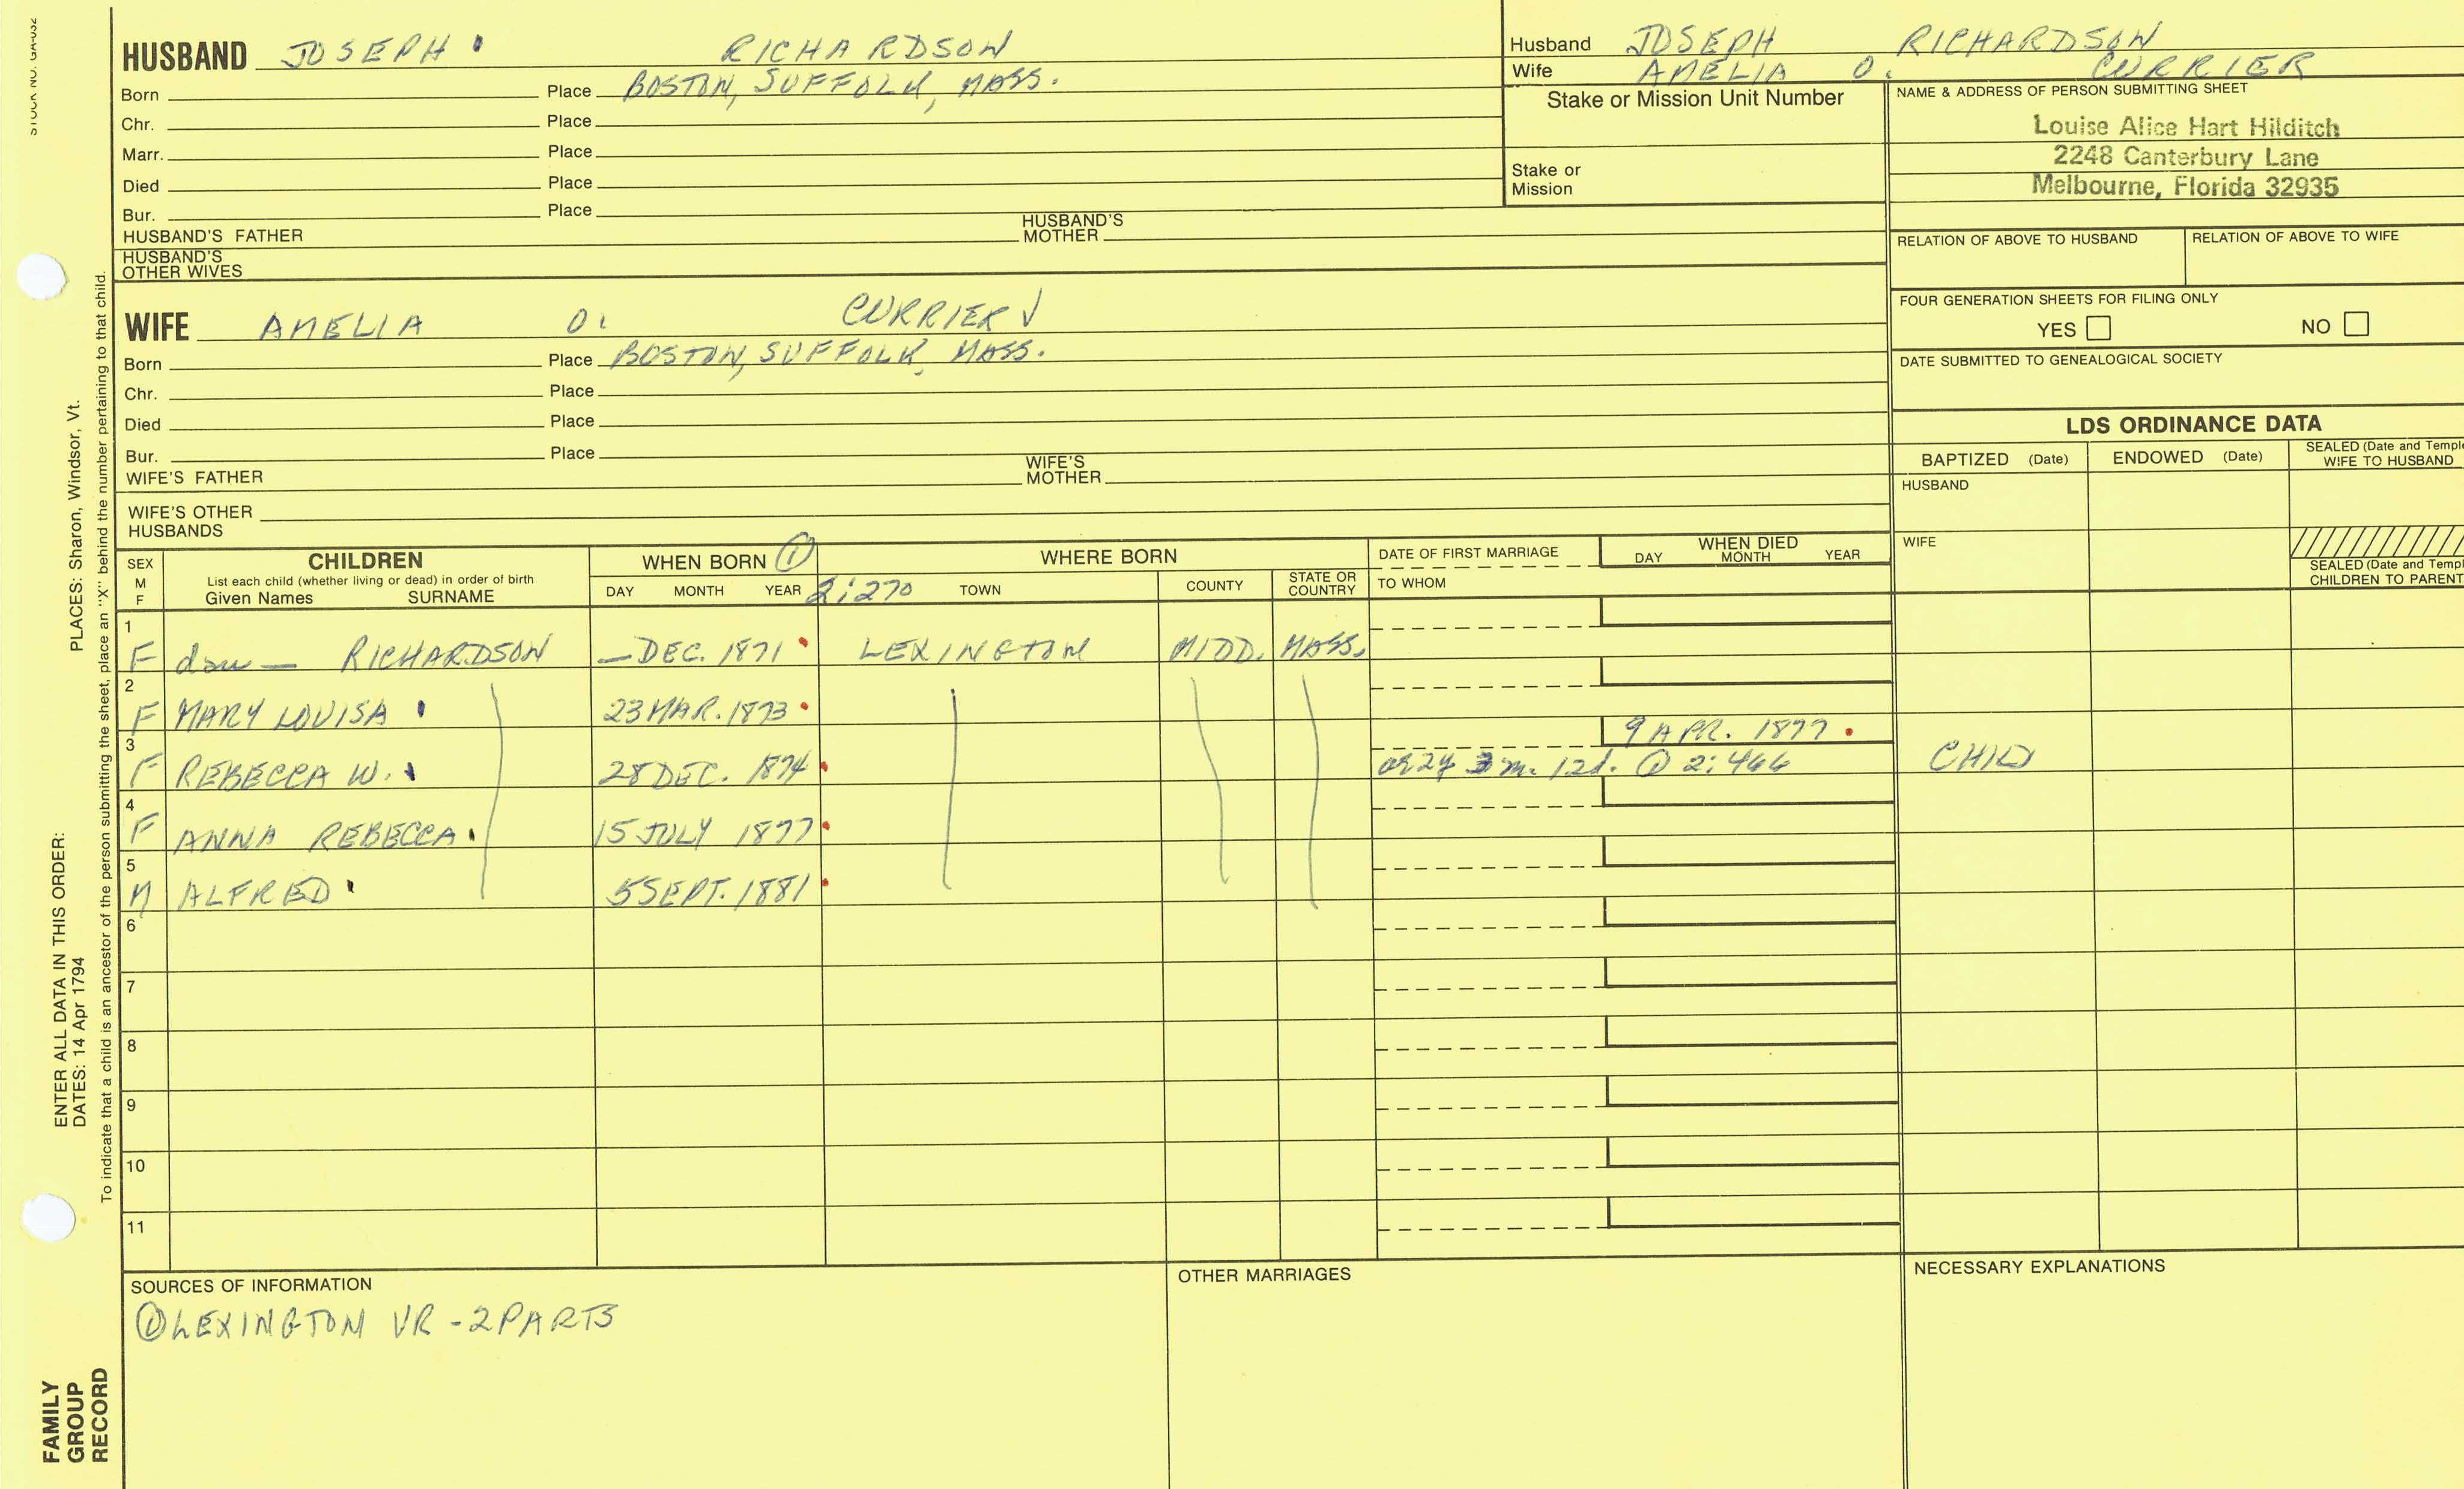 STOCK NO. GA-032
HUSBAND JOSEPH RICHARDSON
Born Place BOSTON, SUFFOLK, MASS.
Chr. Place
Marr. Place
Died Place
Bur. Place
HUSBAND'S FATHER HUSBAND'S MOTHER
HUSBAND'S OTHER WIVES
Husband JOSEPH RICHARDSON
Wife AMELIA O. CURRIER
Stake or Mission Unit Number
Stake or Mission
NAME & ADDRESS OF PERSON SUBMITTING SHEET
Louise Alice Hart Hilditch
2248 Canterbury Lane
Melbourne, Florida 32935
RELATION OF ABOVE TO HUSBAND RELATION OF ABOVE TO WIFE
FOUR GENERATION SHEETS FOR FILING ONLY
YES NO
DATE SUBMITTED TO GENEALOGICAL SOCIETY
WIFE AMELIA O. CURRIER √
Born Place BOSTON, SUFFOLK, MASS.
Chr. Place
Died Place
Bur. Place
WIFE'S FATHER WIFE'S MOTHER
WIFE'S OTHER HUSBANDS
LDS ORDINANCE DATA
BAPTIZED (Date) ENDOWED (Date) SEALED (Date and Temple
WIFE TO HUSBAND
HUSBAND
WIFE
SEALED (Date and Templ
CHILDREN TO PARENT
SEX CHILDREN WHEN BORN ① WHERE BORN DATE OF FIRST MARRIAGE WHEN DIED
M List each child (whether living or dead) in order of birth DAY MONTH YEAR 2:270 TOWN COUNTY STATE OR COUNTRY TO WHOM DAY MONTH YEAR
F Given Names SURNAME
1
F dau — RICHARDSON — DEC. 1871 LEXINGTON MIDD. MASS.
2
F MARY LOUISA 23 MAR. 1873
3 9 APR. 1877
F REBECCA W. 28 DEC. 1874 ae 2y 3m. 12d. ① 2:466 CHILD
4
F ANNA REBECCA 15 JULY 1877
5
M ALFRED 5 SEPT. 1881
6
7
8
9
10
11
SOURCES OF INFORMATION
① LEXINGTON VR - 2 PARTS
OTHER MARRIAGES
NECESSARY EXPLANATIONS
PLACES: Sharon, Windsor, Vt.
ENTER ALL DATA IN THIS ORDER:
DATES: 14 Apr 1794
To indicate that a child is an ancestor of the person submitting the sheet, place an "X" behind the number pertaining to that child.
FAMILY
GROUP
RECORD